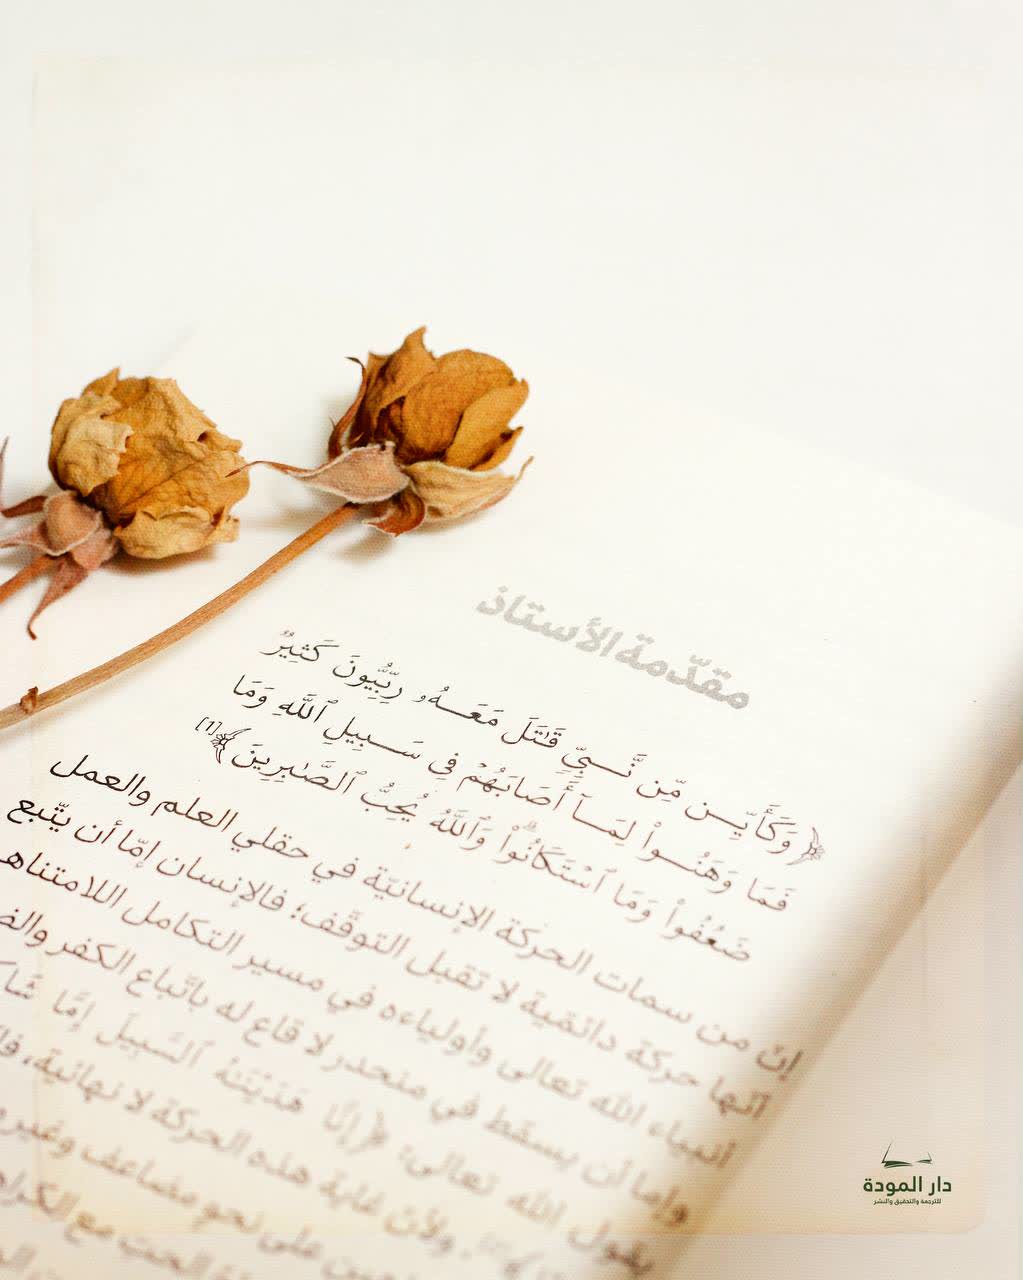 مقدّمة الأستاذ
﴿وَكَأَيِّن مِّن نَّبِيٍّ قَٰتَلَ مَعَهُۥ رِبِّيُّونَ كَثِيرٌ
فَمَا وَهَنُوا۟ لِمَآ أَصَابَهُمْ فِي سَبِيلِ ٱللَّهِ وَمَا
ضَعُفُوا۟ وَمَا ٱسْتَكَانُوا۟ ۗ وَٱللَّهُ يُحِبُّ ٱلصَّٰبِرِينَ﴾[1]
إنّ من سمات الحركة الإنسانيّة في حقلي العلم والعمل
أنّها حركة دائميّة لا تقبل التوقّف؛ فالإنسان إمّا أن يتّبع
أنبياء الله تعالى وأولياءه في مسير التكامل
وإما أن يسقط في منحدر لا قاع له باتّباع الكفر
يقول الله تعالى: ﴿إِنَّا هَدَيْنَٰهُ ٱلسَّبِيلَ إِمَّا
ولأنّ غاية هذه الحركة لا نهائية،
على نحو مضاعف
دار المودة
للترجمة والتحقيق والنشر